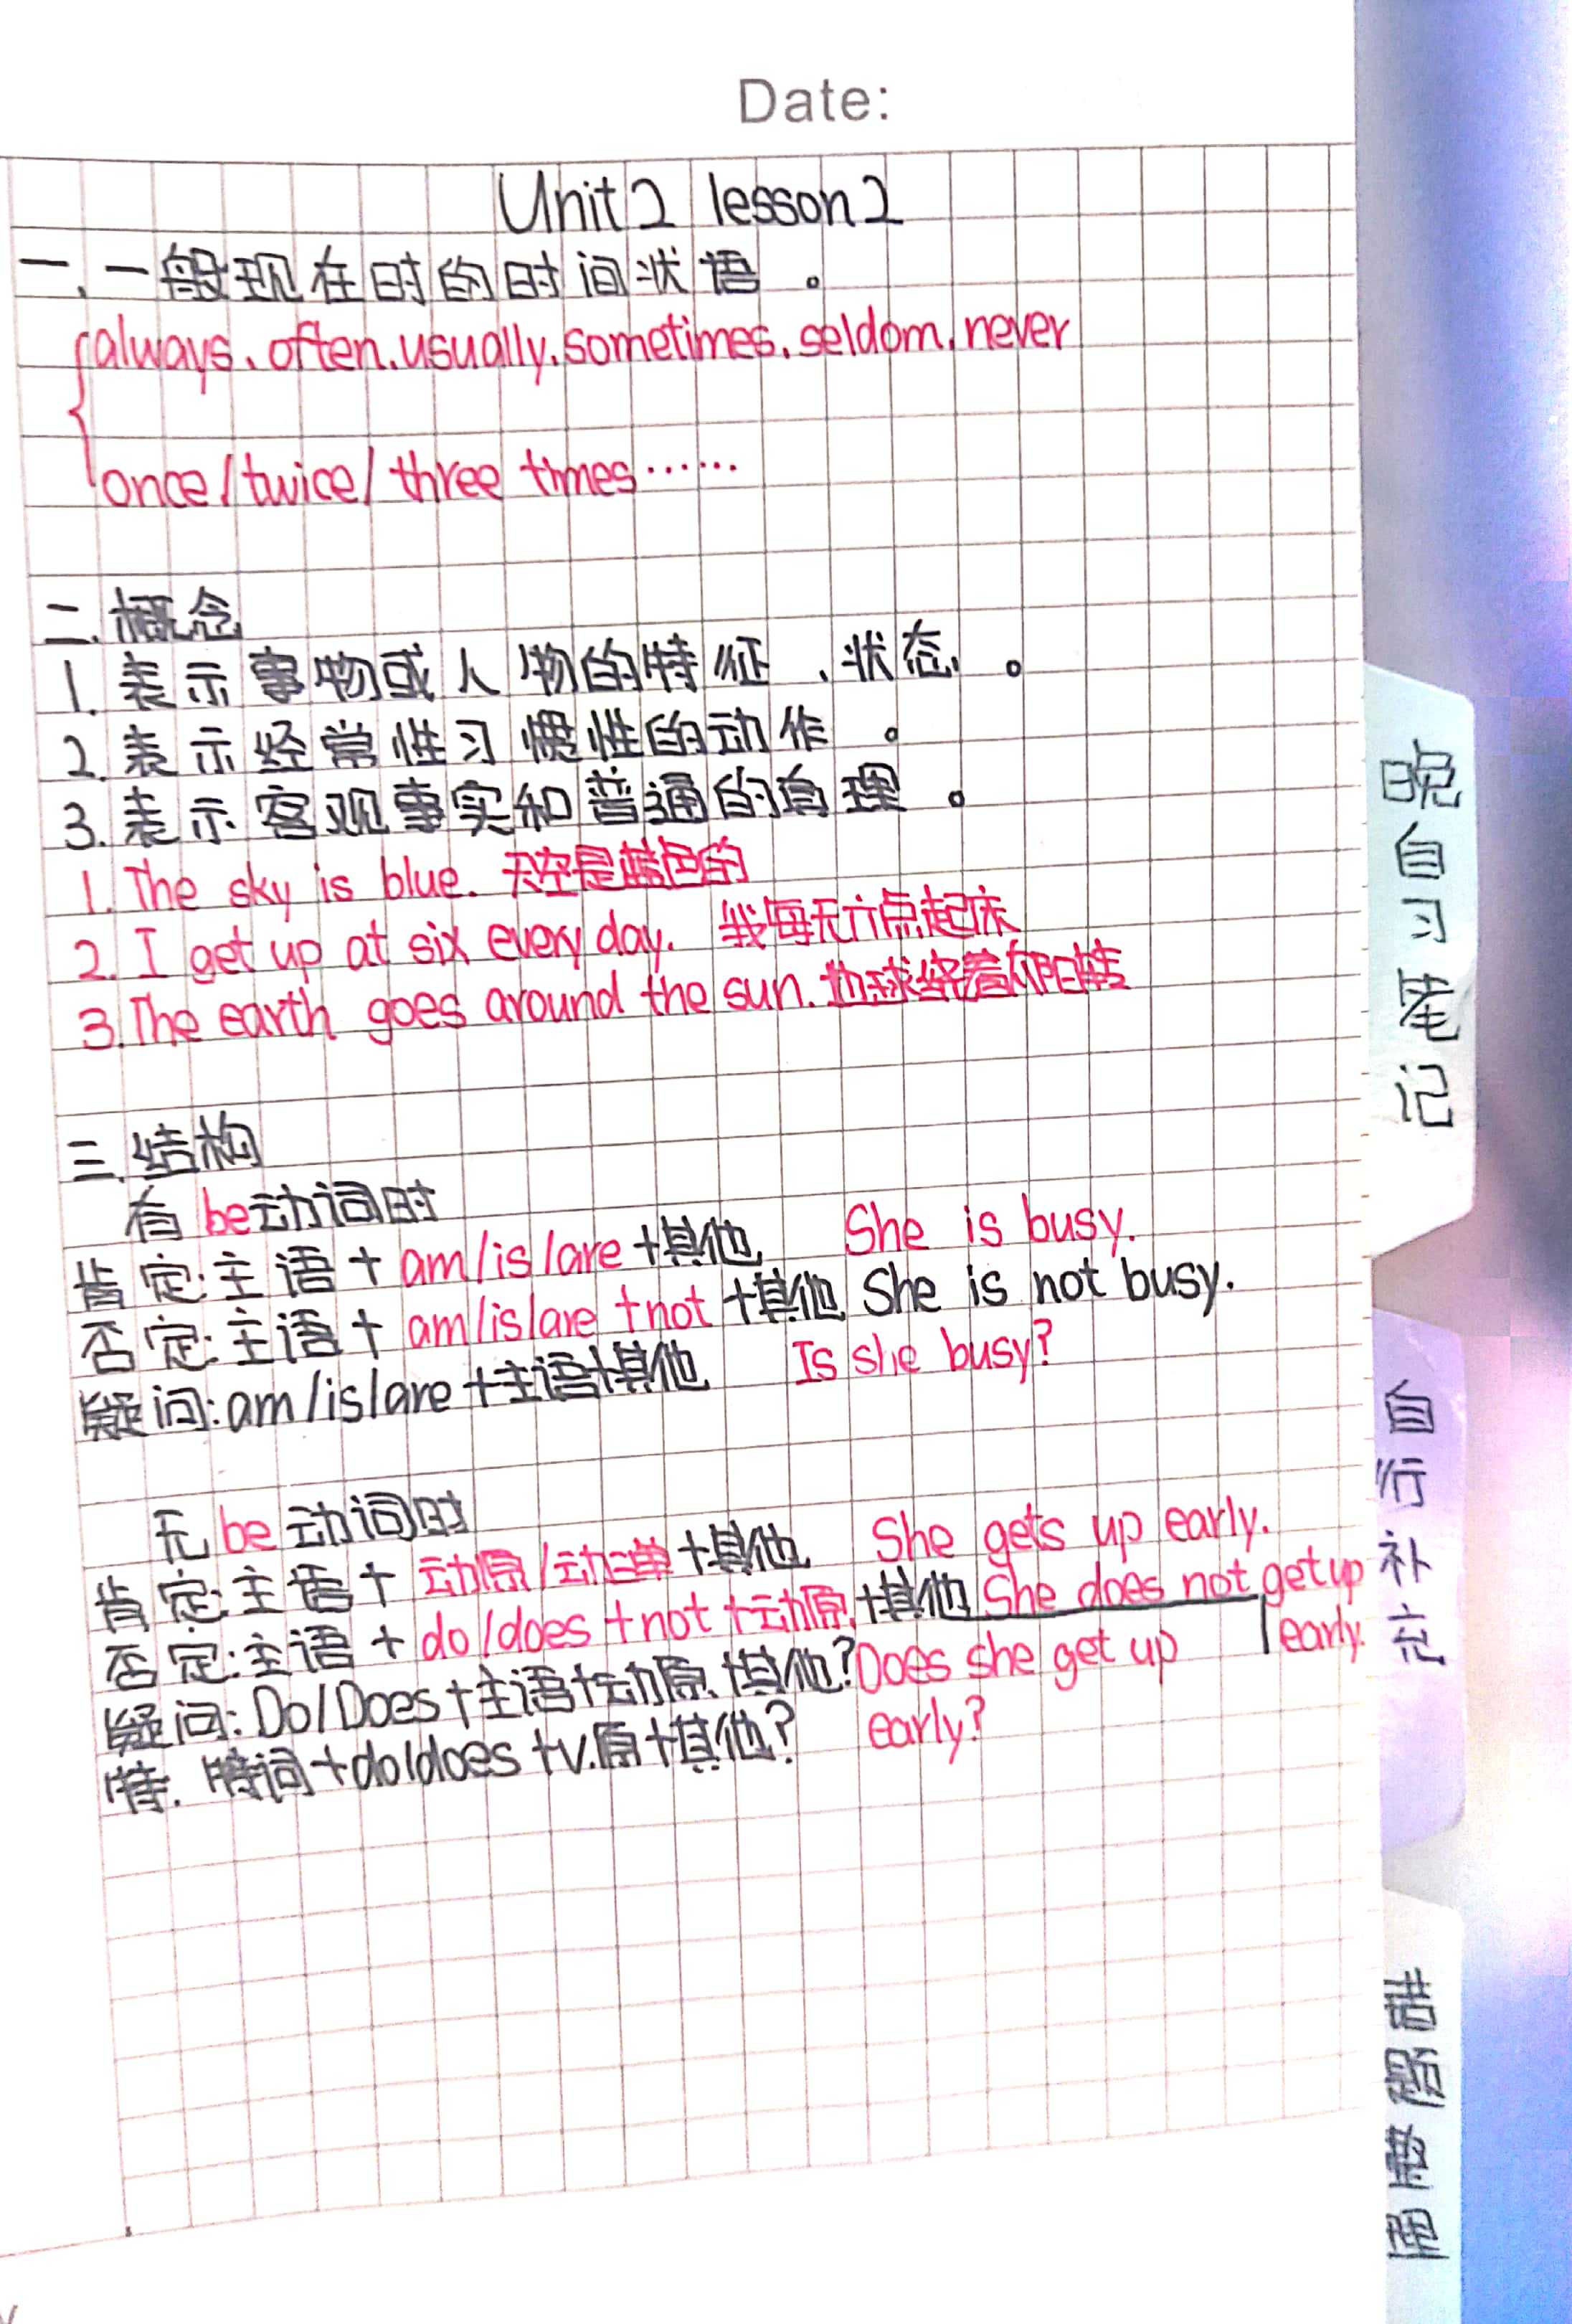 Date:
Unit 2 lesson 2
一、一般现在时的时间状语。
always、often、usually、sometimes、seldom、never
once/twice/three times……
二、概念
1. 表示事物或人物的特征、状态。
2. 表示经常性习惯性的动作。
3. 表示客观事实和普通的真理。
1. The sky is blue. 天空是蓝色的
2. I get up at six every day. 我每天六点起床
3. The earth goes around the sun. 地球绕着太阳转
三、结构
有be动词时
肯定:主语+am/is/are+其他 She is busy.
否定:主语+am/is/are+not+其他 She is not busy.
疑问:am/is/are+主语+其他 Is she busy?
无be动词时
肯定:主语+动原/动三单+其他 She gets up early.
否定:主语+do/does+not+动原+其他 She does not get up
early.
疑问:Do/Does+主语+动原+其他? Does she get up
early?
特:特词+do/does+v.原+其他?
晚自习笔记
自行补充
错题整理